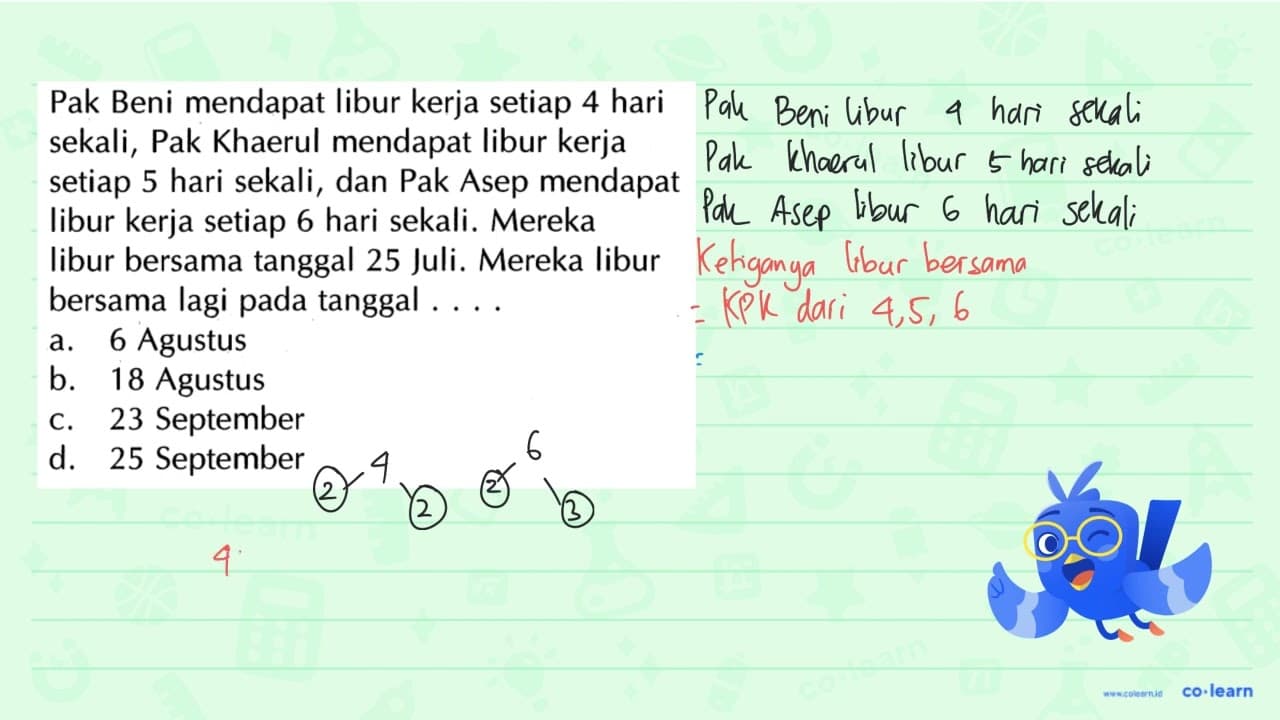 Pak Beni mendapat libur kerja setiap 4 hari
sekali, Pak Khaerul mendapat libur kerja
setiap 5 hari sekali, dan Pak Asep mendapat
libur kerja setiap 6 hari sekali. Mereka
libur bersama tanggal 25 Juli. Mereka libur
bersama lagi pada tanggal . . . .
a. 6 Agustus
b. 18 Agustus
c. 23 September
d. 25 September
Pak Beni libur 4 hari sekali
Pak Khaerul libur 5 hari sekali
Pak Asep libur 6 hari sekali
Ketiganya libur bersama
= KPK dari 4, 5, 6
=
4
2 2
6
2 3
4
co·learn
co·learn
co·learn
www.colearn.id co·learn